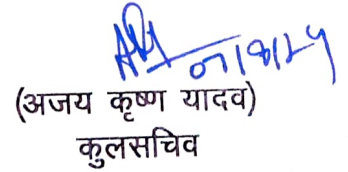 07/8/24
(अजय कृष्ण यादव)
कुलसचिव